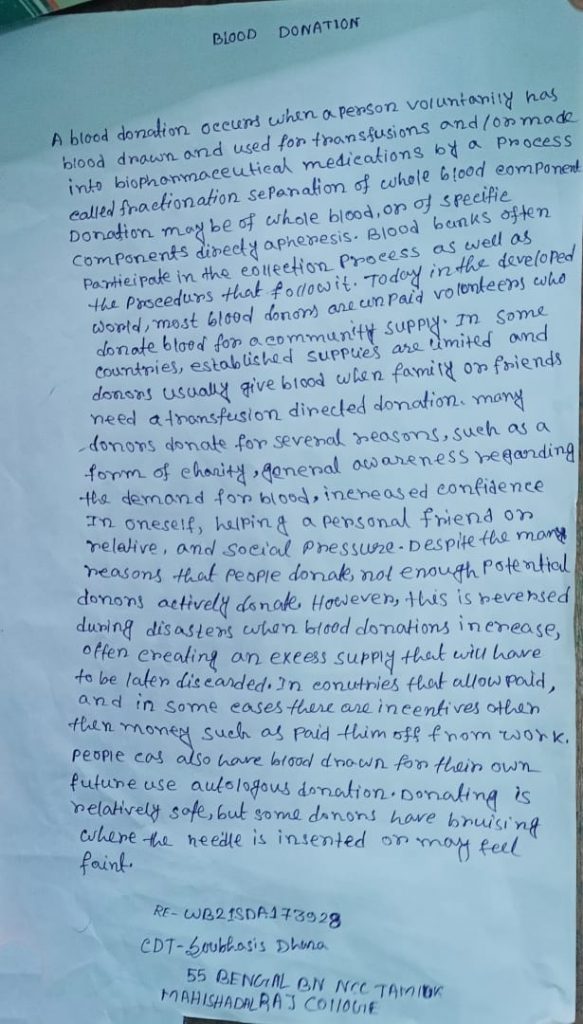 BLOOD DONATION
A blood donation occurs when a person voluntarily has
blood drawn and used for transfusions and/or made
into biopharmaceutical medications by a process
called fractionation separation of whole blood component
Donation may be of whole blood, or of specific
components direcly apheresis. Blood banks often
Participate in the collection Process as well as
the Procedurs that followit. Today in the developed
world, most blood donors are unpaid volonteers who
donate blood for a community supply. In some
countries, established supplies are limited and
donors usually give blood when family or friends
need a transfusion directed donation. many
donors donate for several reasons, such as a
form of charity, general awareness regarding
the demand for blood, increased confidence
In oneself, helping a personal friend or
relative, and social pressure. Despite the many
reasons that people donate, not enough potential
donors actively donate. However, this is reversed
during disasters when blood donations increase,
often creating an excess supply that will have
to be later discarded. In conutries that allow paid,
and in some cases there are incentives other
then money such as paid thim off from work.
People cas also have blood drawn for their own
future use autologous donation. Donating is
relatively safe, but some donors have bruising
where the needle is inserted or may feel
faint.
RE- WB21SDA173928
CDT- Soubhasis Dhara
55 BENGAL BN NCC TAMLUK
MAHISHADAL RAJ COllOGIE